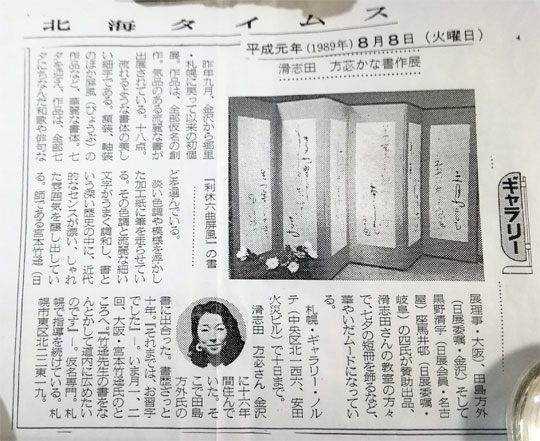 北海タイムス
平成元年(1989年)8月8日(火曜日)
滑志田 方苾かな書作展
ギャラリー
昨年九月、金沢から郷里
・札幌に戻って以来の初個
展。作品は、全部仮名の創
作。気品のある流麗な書が
出展されている。十八点。
流れるような書体の美し
い細字である。額装、軸装
のほか屏風(びょうぶ)の
作品など、華麗な書体。七
夕を迎え、作品は、全部七
夕にちなんだ和歌や俳句な
どを選んでいる。
淡い色調や模様を浮かし
た加工紙に筆を走らせてい
る。その色調と流麗な細い
文字がうまく調和し、書と
いう深い歴史の中に、近代
的なセンスが漂い、しゃれ
た雰囲気を醸し出してい
る。師である宮本竹逕(日
「利休六曲屏風」の書
展理事・大阪)、田島方外
(日展委嘱・金沢)そして
黒野清宇(日展会員・名古
屋)座馬井邨(日展委嘱・
岐阜)の四氏が賛助出品、
滑志田さんの教室の方々
で、七夕の短冊を飾るなど、
華やいだムードになってい
る。
札幌・ギャラリー・ノル
テ(中央区北一西六、安田
火災ビル)で十日まで。
滑志田 方苾さん 金沢
に十六年
間住んで
いた。そ
こで田島
方外氏の
書に出合った。書歴ざっと
十年。「それまでは、お習字
でした」―。いま月一、二
回、大阪・宮本竹逕氏のと
ころへ。「竹逕先生の書をな
んとかして道内に広めたい
のです」―。仮名専門。札
幌で指導を続けている。札
幌市東区北二二東一九。